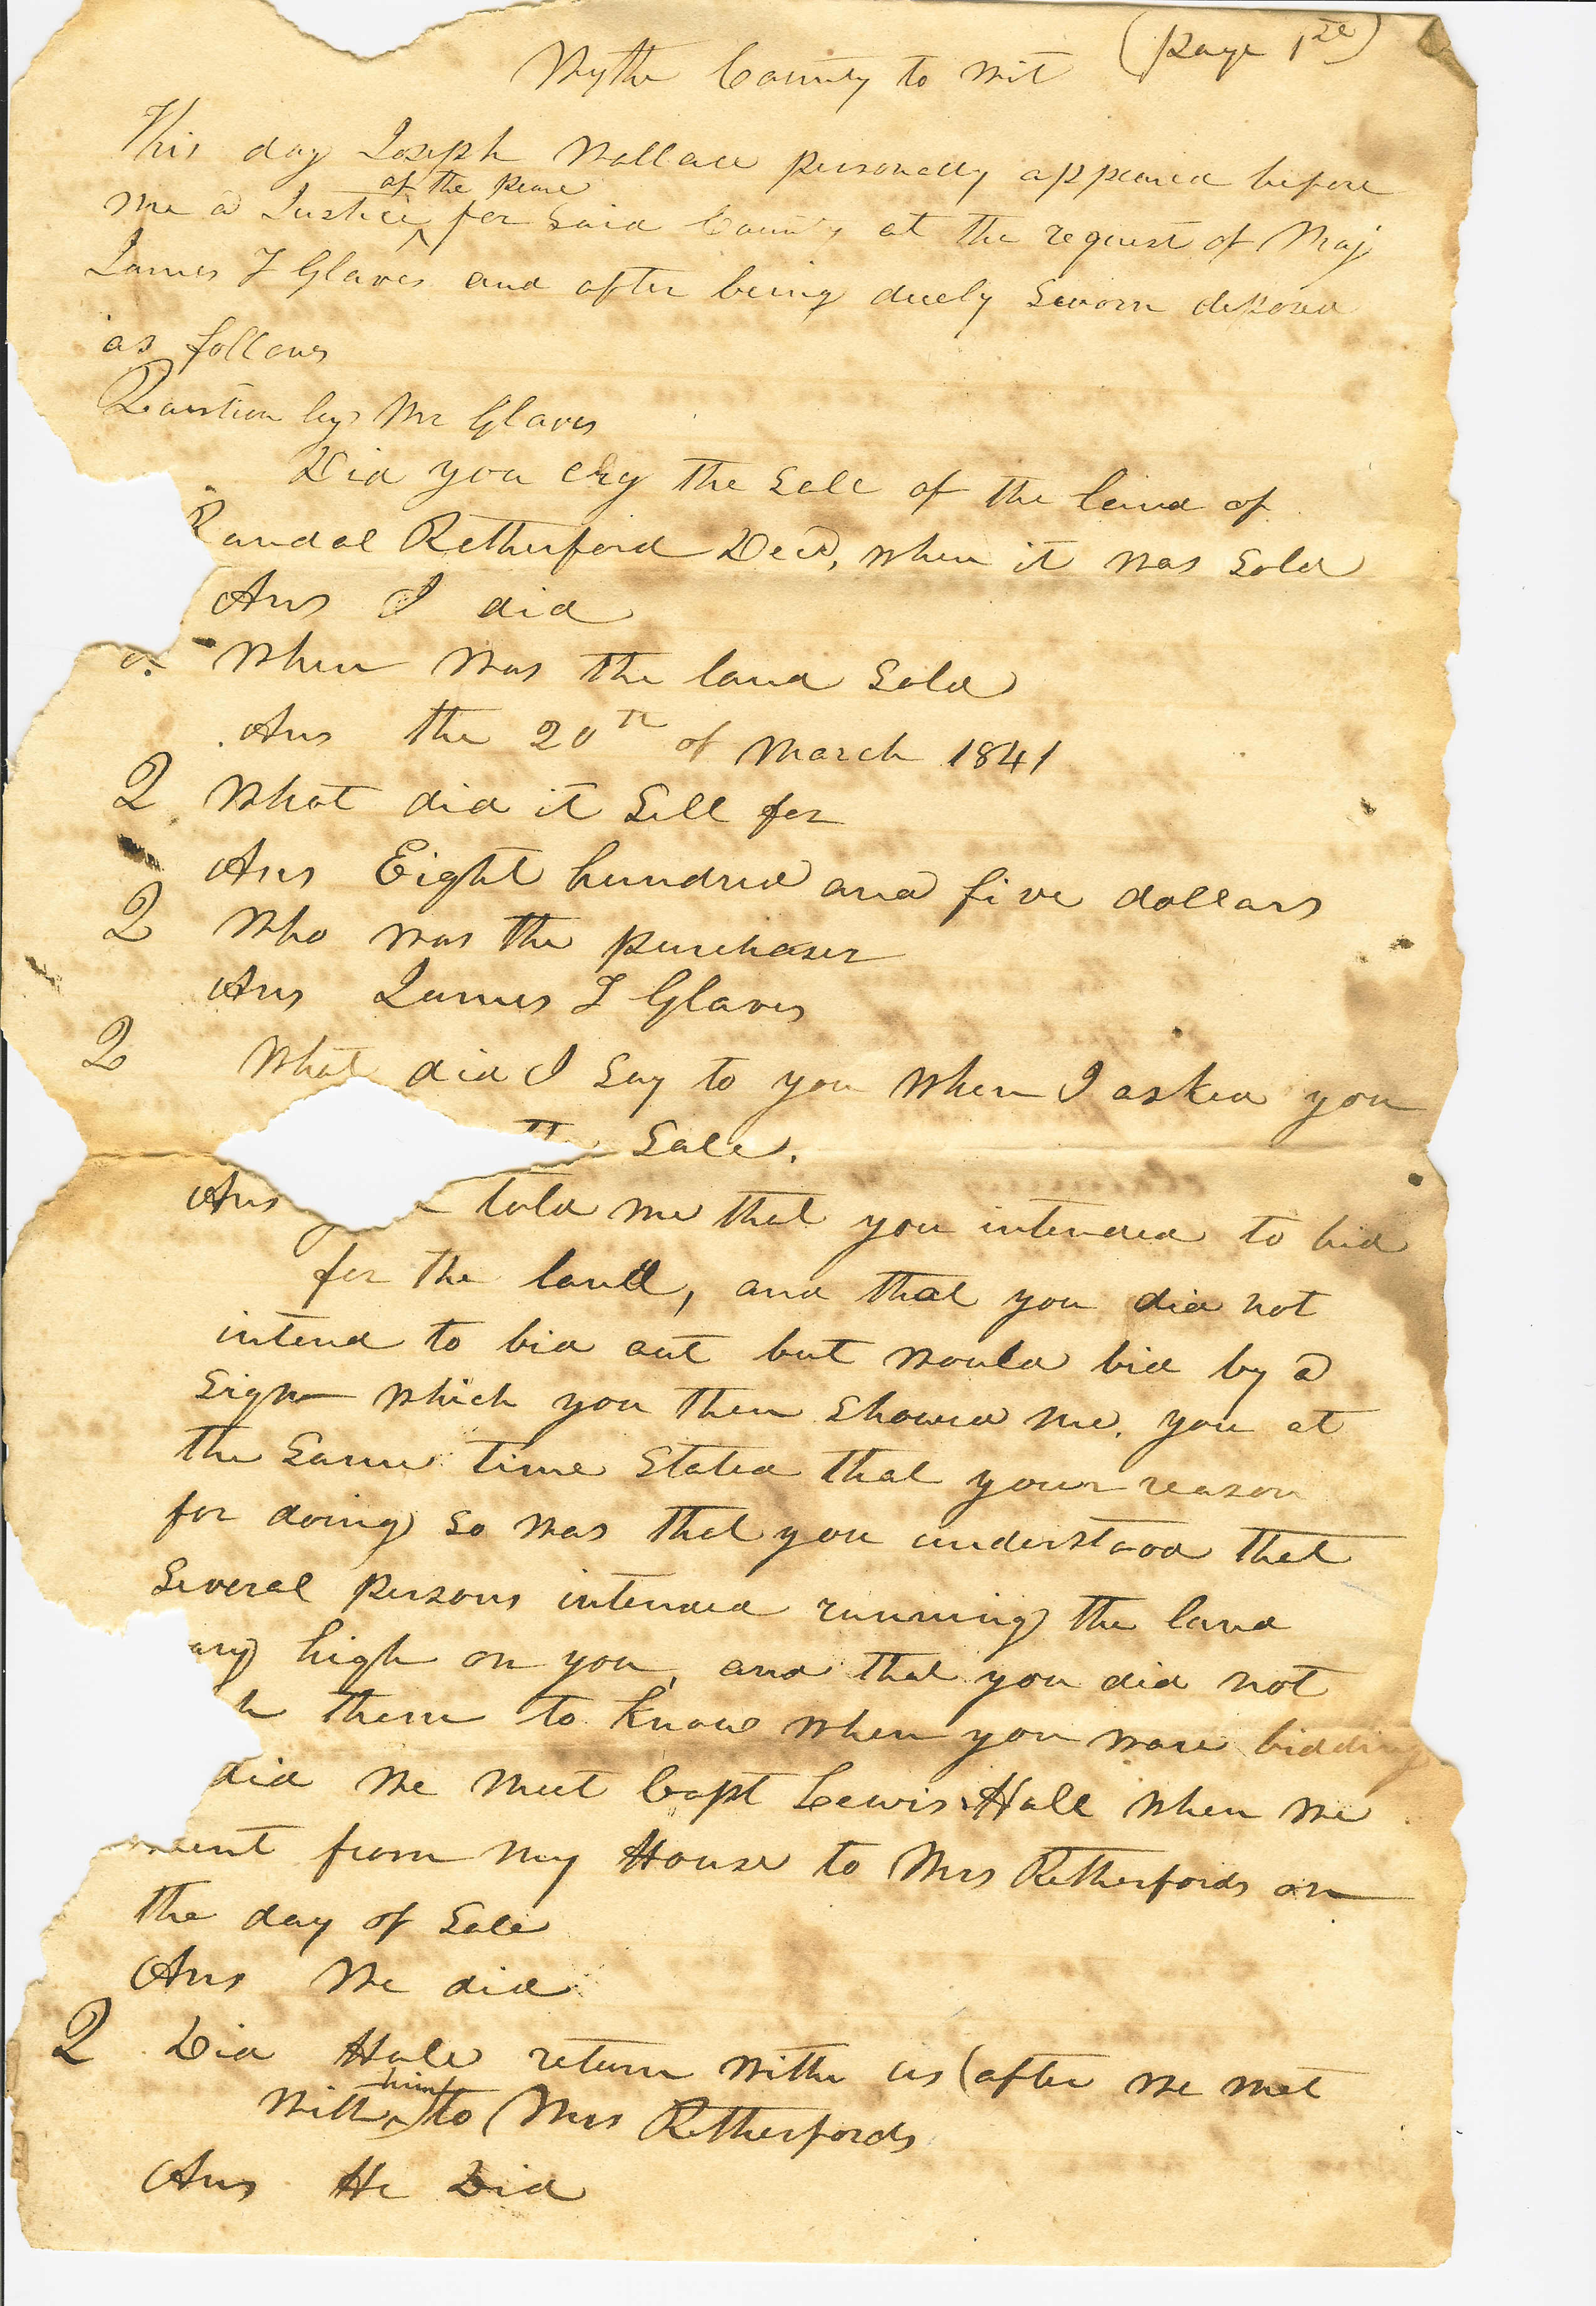 (Page 1st)
Wythe County to wit
This day Joseph Wallace personally appeared before
of the peace
me a Justice ^ for said County at the request of Maj
James T Glaves and after being duely sworn deposed
as follows
Question by Mr Glaves
Did you cry the sale of the land of
Randal Retherford Decd, when it was sold
Ans I did
When was the land sold
Ans the 20th of March 1841
Q What did it sell for
Ans Eight hundred and five dollars
Q Who was the purchaser
Ans James T Glaves
Q What did I say to you when I asked you
Sale.
Ans told me that you intended to bid
for the land, and that you did not
intend to bid out but would bid by a
sign which you then showed me. you at
the same time stated that your reason
for doing so was that you understood that
several persons intended running the land
high on you, and that you did not
them to know when you ware bidding
did we meet Capt Lewis Hale when we
went from my House to Mrs Retherfords on
the day of sale
Ans We did
Q Did Hale return withe us (after we met
him
with ^) to Mrs Retherfords
Ans He Did